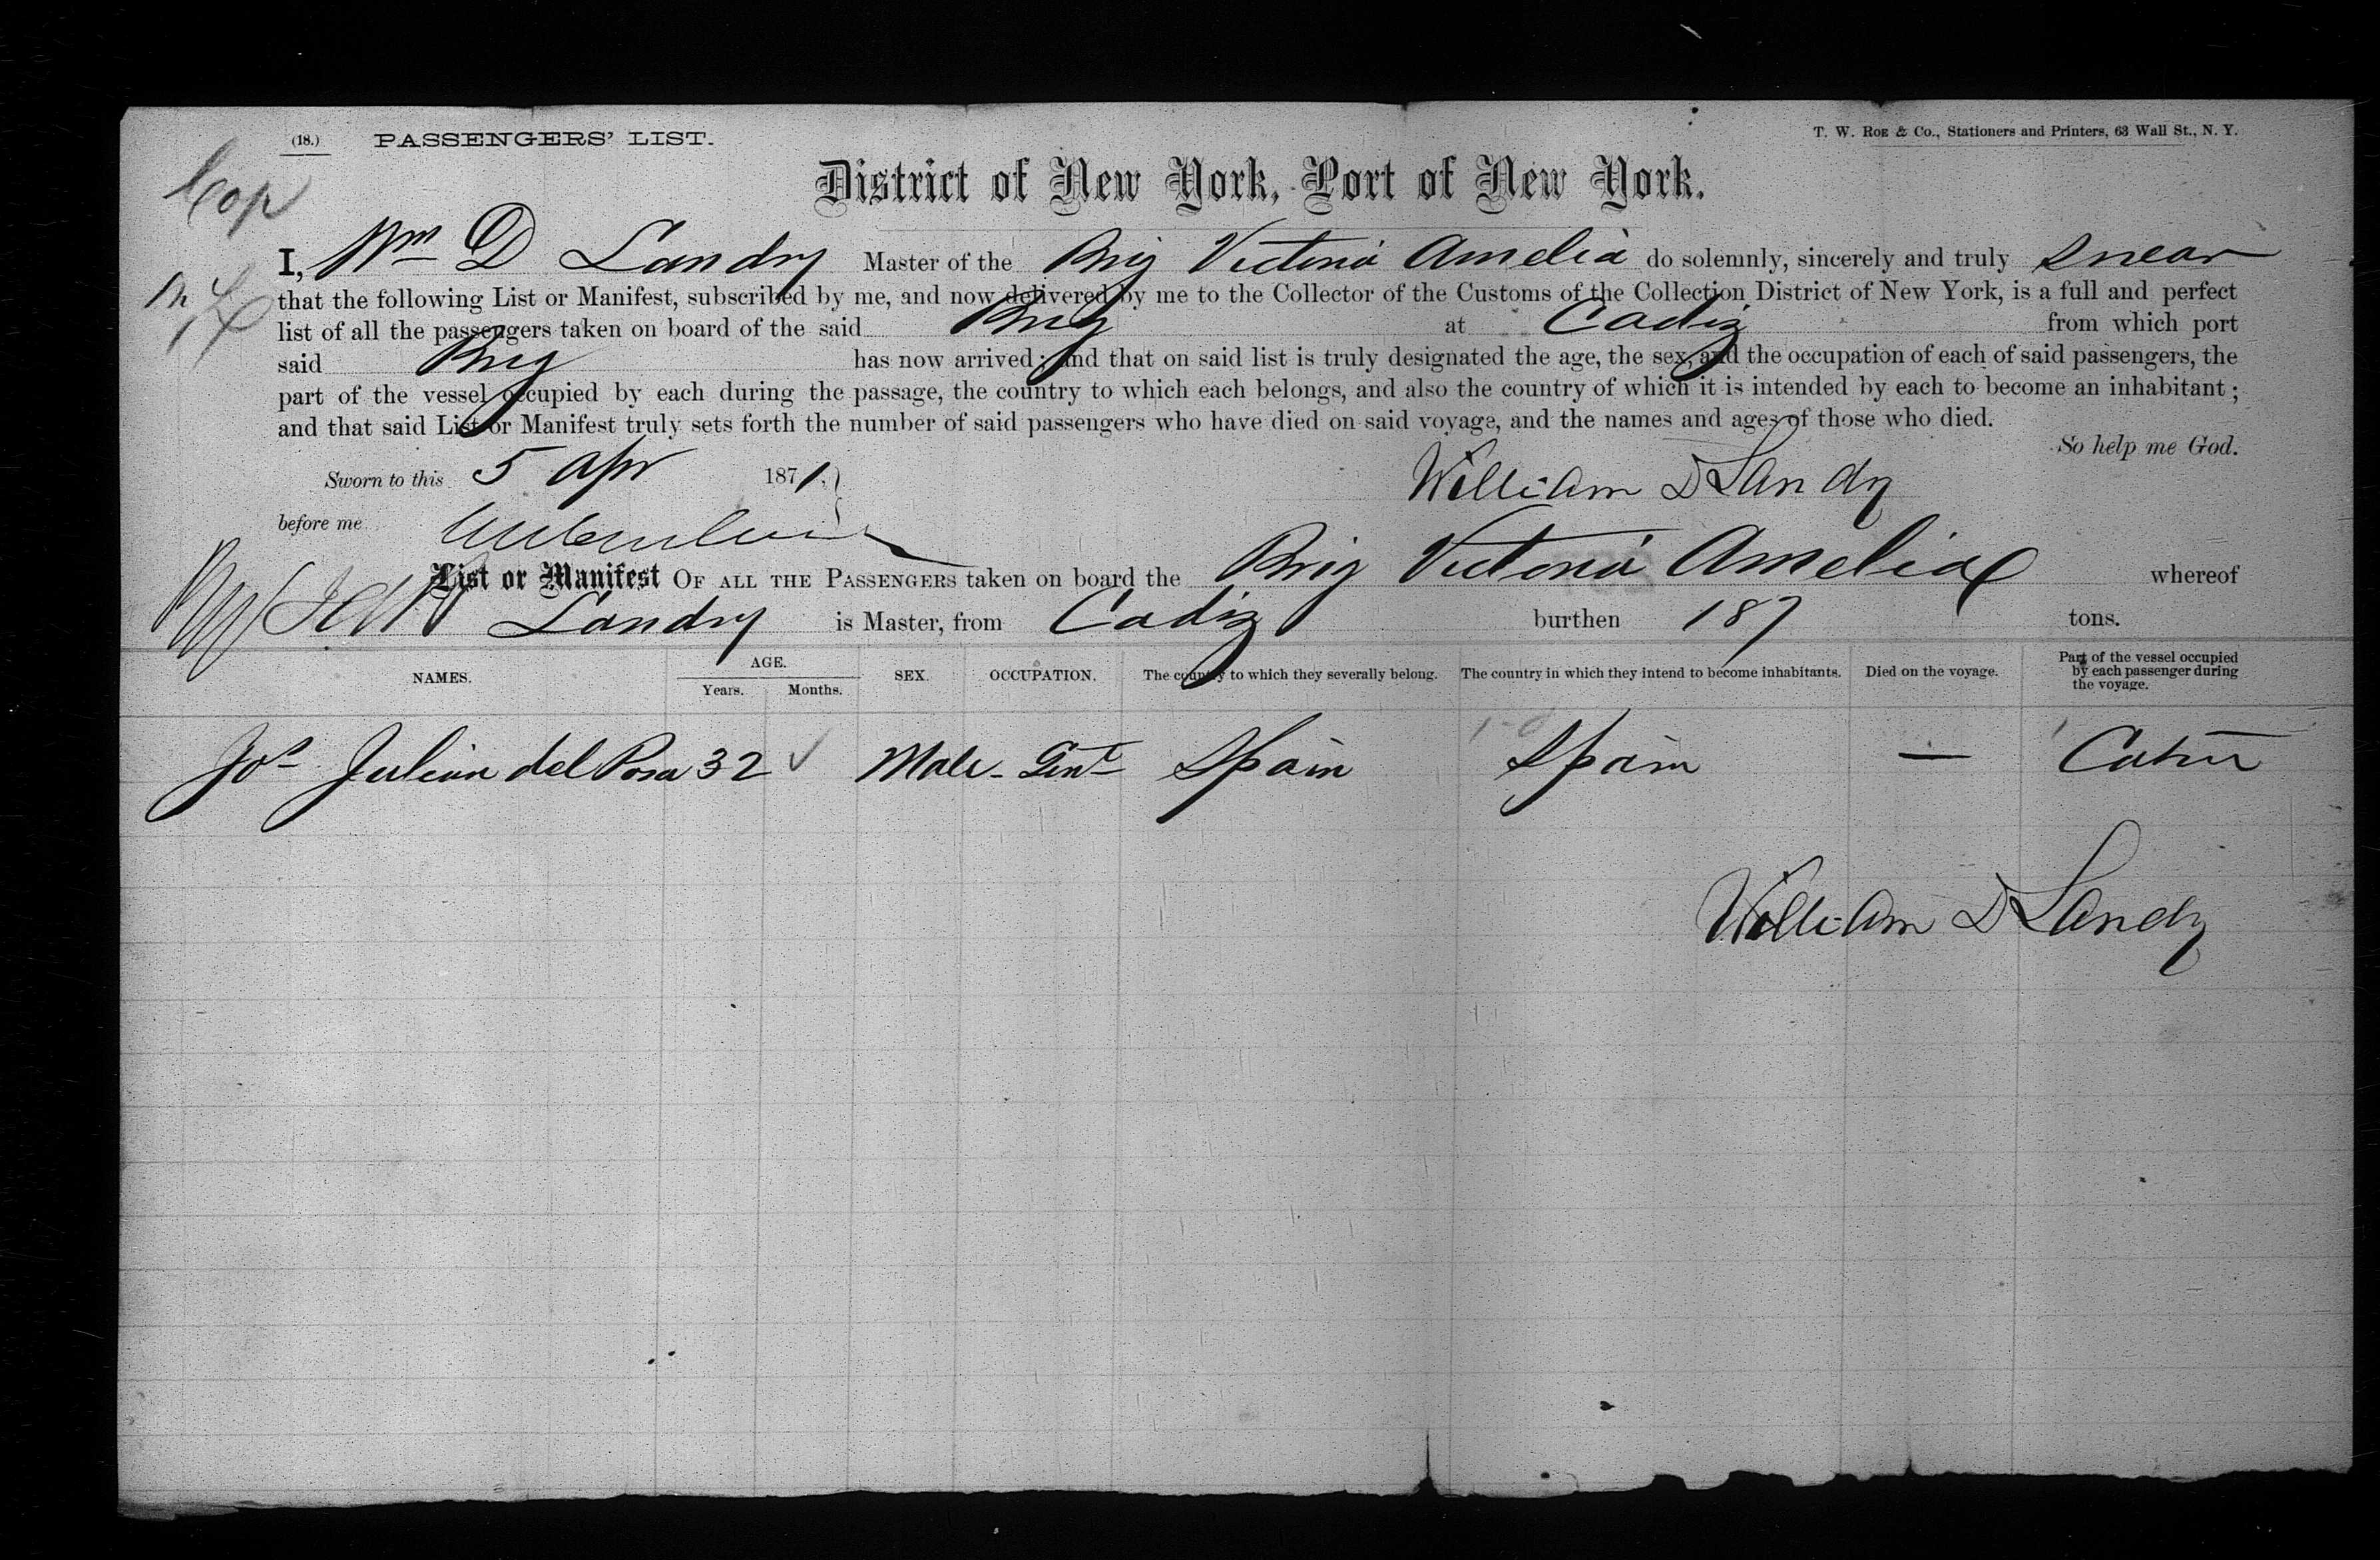 (18.) PASSENGERS' LIST.
T. W. ROE & Co., Stationers and Printers, 63 Wall St., N. Y.
Cop
District of New York, Port of New York.
I, Wm D Landry Master of the Brig Victoria Amelia do solemnly, sincerely and truly swear
that the following List or Manifest, subscribed by me, and now delivered by me to the Collector of the Customs of the Collection District of New York, is a full and perfect
list of all the passengers taken on board of the said Brig at Cadiz from which port
said Brig has now arrived; and that on said list is truly designated the age, the sex, and the occupation of each of said passengers, the
part of the vessel occupied by each during the passage, the country to which each belongs, and also the country of which it is intended by each to become an inhabitant;
and that said List or Manifest truly sets forth the number of said passengers who have died on said voyage, and the names and ages of those who died.
So help me God.
Sworn to this 5 Apr 1871.
William D Landry
before me
List or Manifest OF ALL THE PASSENGERS taken on board the Brig Victoria Amelia whereof
Landry is Master, from Cadiz burthen 187 tons.
NAMES. AGE. Years. Months. SEX. OCCUPATION. The country to which they severally belong. The country in which they intend to become inhabitants. Died on the voyage. Part of the vessel occupied by each passenger during the voyage.
Jos Julian del Posa 32 ✓ Male - Gent Spain Spain — Cabin
William D Landry